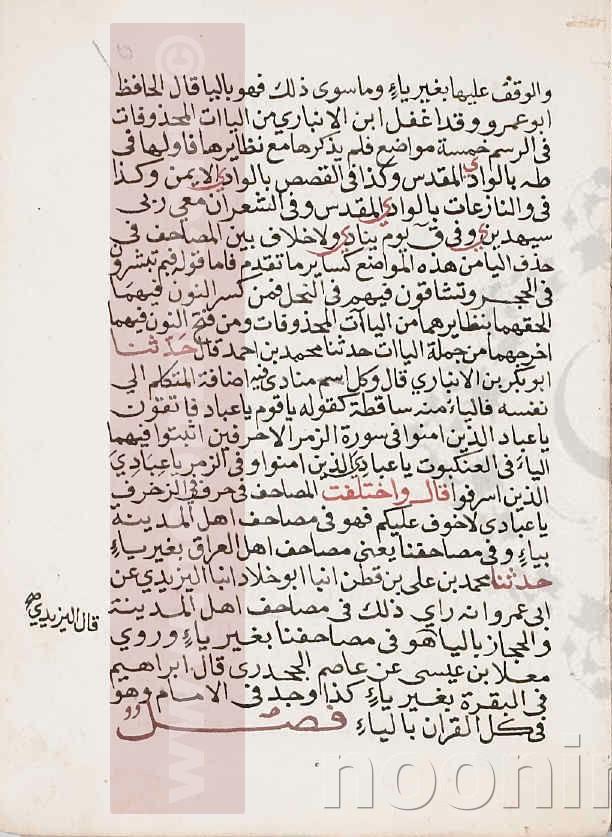 والوقف عليها بغير ياءٍ وما سوى ذلك فهو باليا قال الحافظ
ابو عمرو وقد اغفل ابن الانباري من اليات المحذوفات
فى الرسم خمسة مواضع فلم يذكرها مع نظايرها فاولها فى
طه بالوادي المقدس وكذا فى القصص بالوادي الايمن وكذا
فى والنازعات بالوادي المقدس وفى الشعران معي ربى
سيهديني وفى ق يوم ينادي ولاخلاف بين المصاحف فى
حذف اليا من هذه المواضع كساير ما تقدم فاما قوله فبم تبشرون
فى الحجر وتشاقون فيهم فى النحل فمن كسر النون فيهما
الحقهما بنظايرهما من الياآت المحذوفات ومن فتح النون فيهما
اخرجهما من جملة اليات حدثنا محمد بن احمد قال حدثنا
ابو بكر بن الانباري قال وكل اسم منادى فيه اضافة المتكلم الى
نفسه فالياء منه ساقطة كقوله ياقوم ياعباد فاتقون
ياعباد الذين امنوا فى سورة الزمر الاحرفين اثبتوا فيهما
الياء فى العنكبوت ياعبادي الذين امنوا وفى الزمر ياعبادي
الذين اسرفوا قال واختلفت المصاحف فى حرف فى الزخرف
ياعبادى لاخوف عليكم فهو فى مصاحف اهل المدينة
بياءٍ وفى مصاحفنا يعنى مصاحف اهل العراق بغير ياءٍ
حدثنا محمد بن على بن قطن انبا ابو خلاد انبا اليزيدي عن
ابى عمرو انه راي ذلك فى مصاحف اهل المدينة
قال اليزيدي
والحجاز باليا هو فى مصاحفنا بغير ياءٍ وروي
معلا بن عيسى عن عاصم الجحدرى قال ابراهيم
فى البقرة بغير ياءٍ كذا وجد فى الامام وهو
فى كل القران بالياءِ فصل
www.
noonin